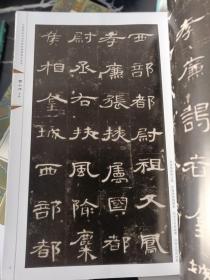 孝廉謁者金城
西部都尉祖父鳳
孝廉張掖屬國都
尉丞右扶風隃麋
侯相金城西部都